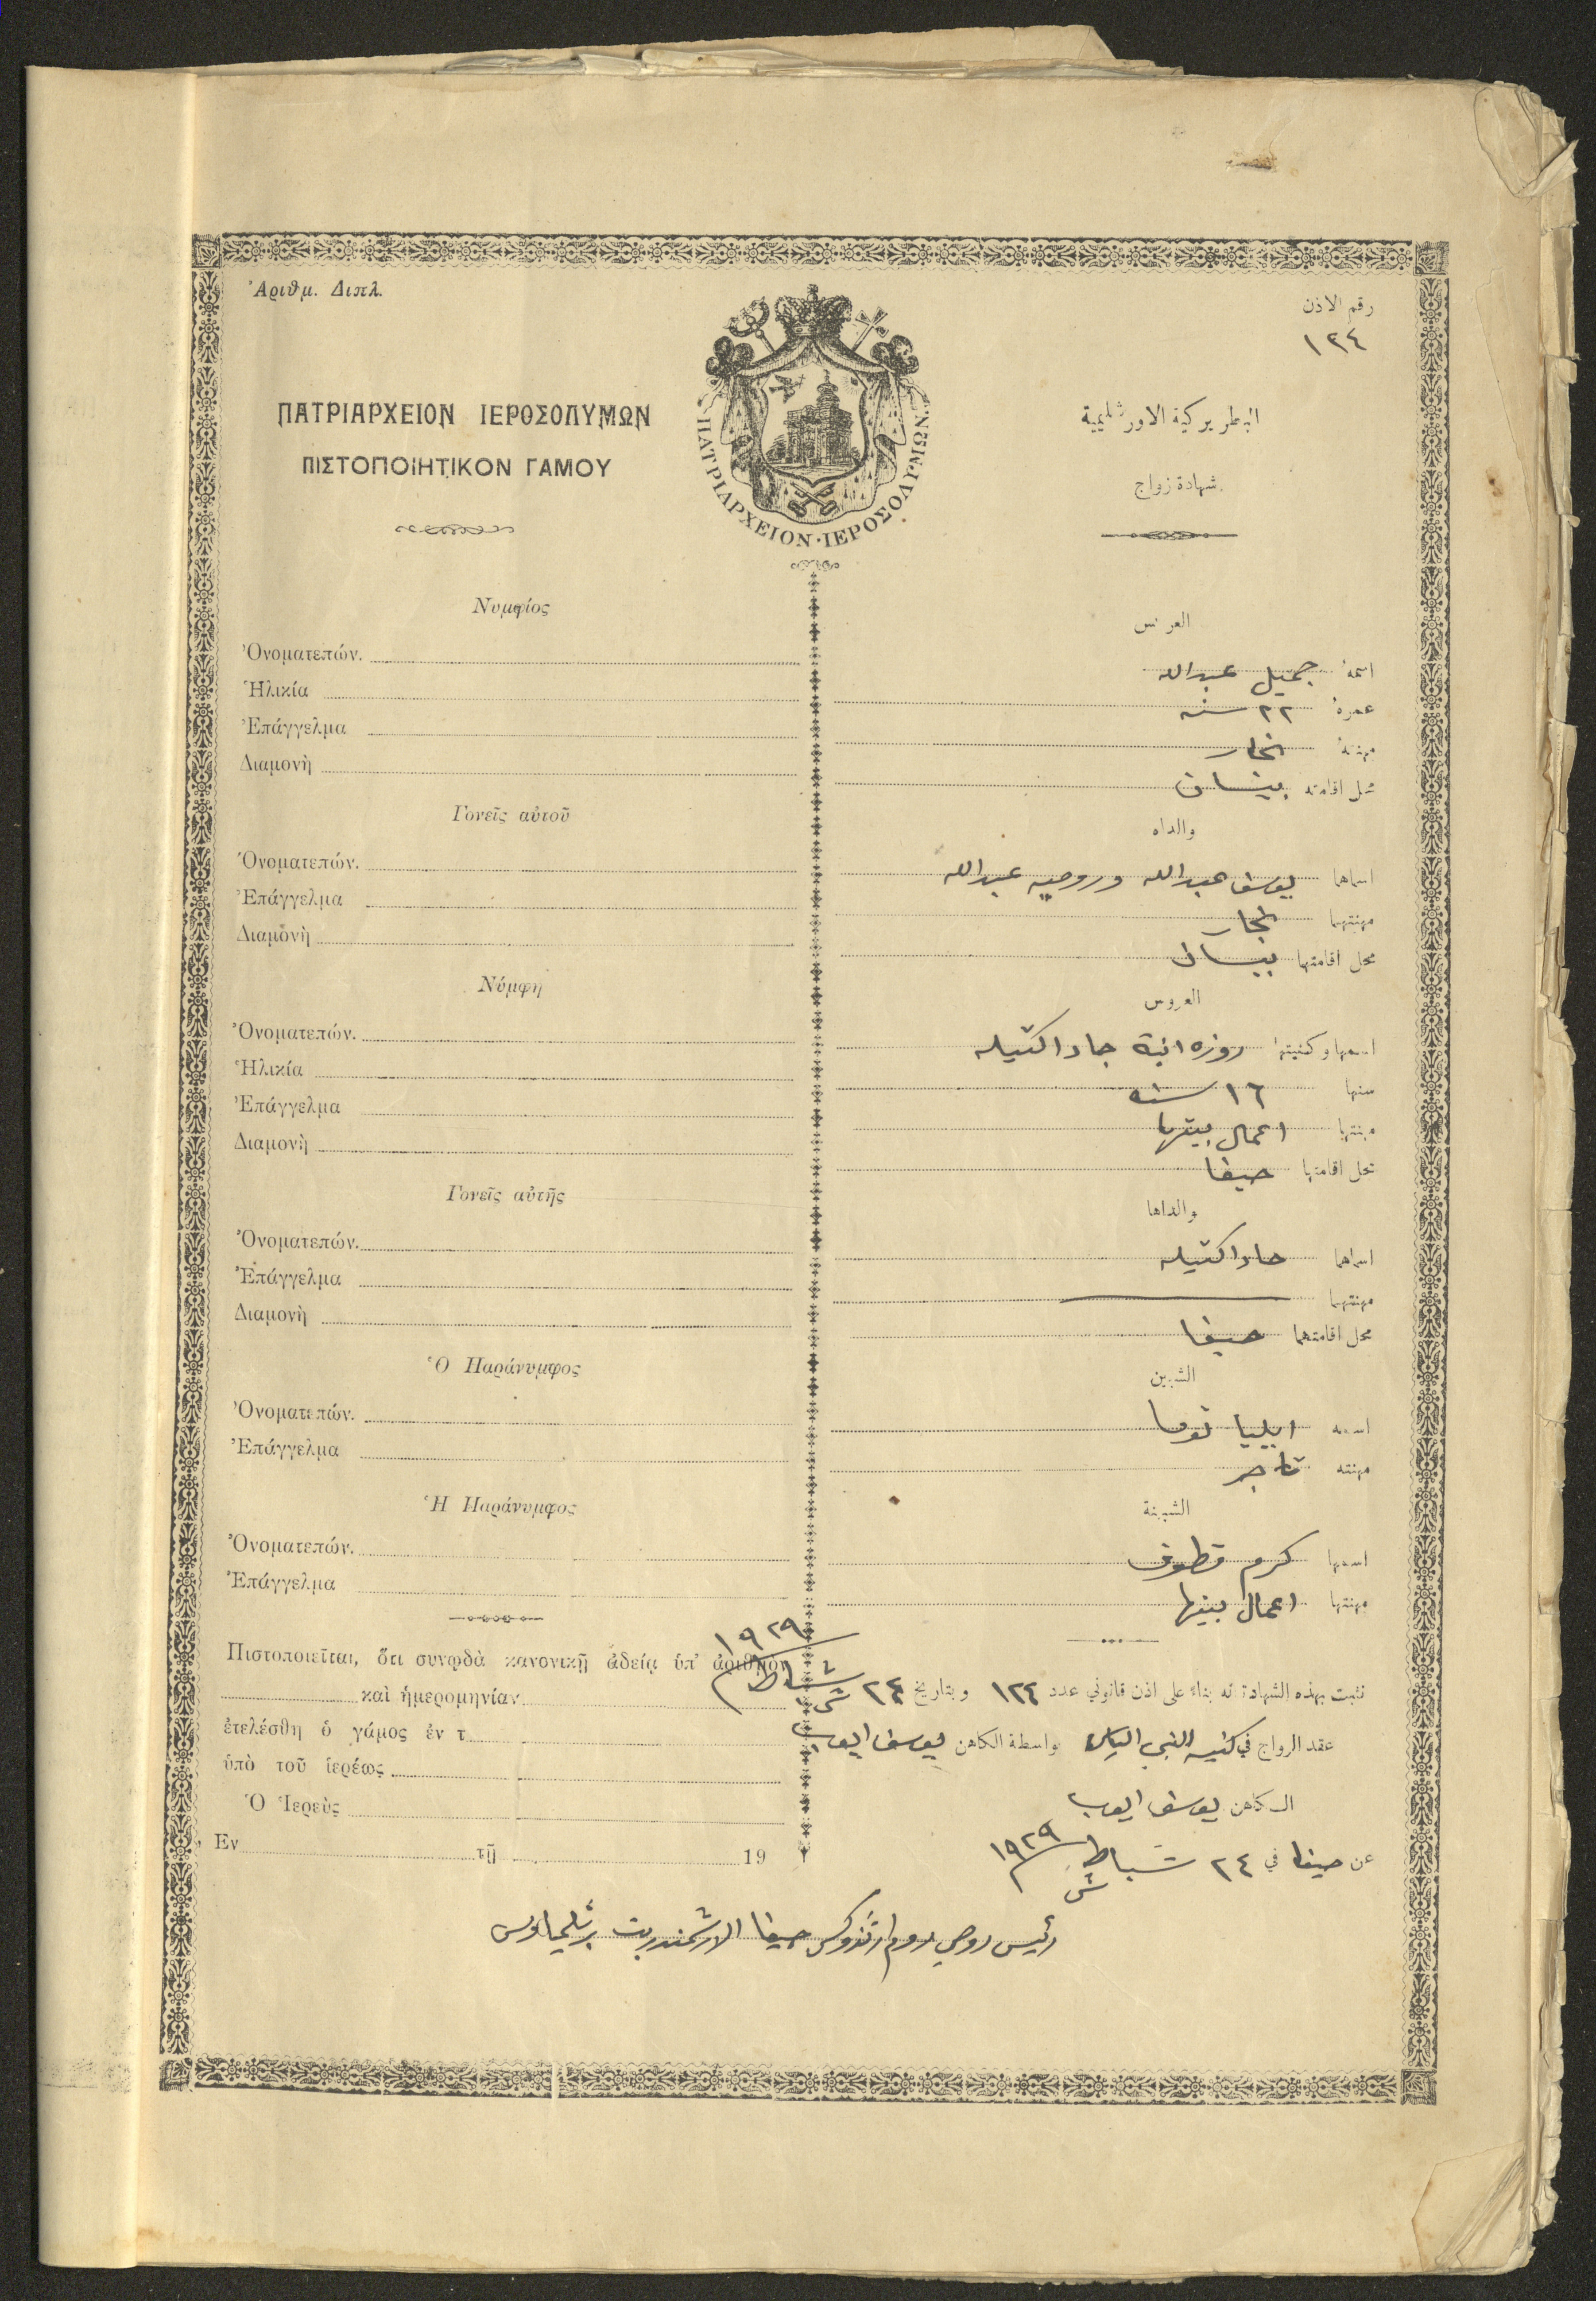 Ἀριθμ. Διπλ.
رقم الاذن
١٢٤
ΠΑΤΡΙΑΡΧΕΙΟΝ ΙΕΡΟΣΟΛΥΜΩΝ
ΠΙΣΤΟΠΟΙΗΤΙΚΟΝ ΓΑΜΟΥ
ΠΑΤΡΙΑΡΧΕΙΟΝ·ΙΕΡΟΣΟΛΥΜΩΝ.
البطريركية الاورشليمية
شهادة زواج
Νυμφίος
Ὀνοματεπών.
Ἡλικία
Ἐπάγγελμα
Διαμονὴ
Γονεῖς αὐτοῦ
Ὀνοματεπών.
Ἐπάγγελμα
Διαμονὴ
Νύμφη
Ὀνοματεπών.
Ἡλικία
Ἐπάγγελμα
Διαμονὴ
Γονεῖς αὐτῆς
Ὀνοματεπών.
Ἐπάγγελμα
Διαμονὴ
Ὁ Παράνυμφος
Ὀνοματεπών.
Ἐπάγγελμα
Ἡ Παράνυμφος
Ὀνοματεπών.
Ἐπάγγελμα
Πιστοποιεῖται, ὅτι συνῳδὰ κανονικῇ ἀδείᾳ ὑπ' ἀριθμὸν
καὶ ἡμερομηνίαν
ἐτελέσθη ὁ γάμος ἐν τ
ὑπὸ τοῦ ἱερέως
Ὁ Ἱερεὺς
Ἐν τῇ 19
العريس
اسمه جميل عبدالله
عمره ٢٢ سنه
مهنته نجار
محل اقامته بيسان
والداه
اسماهما يوسف عبدالله وروجيه عبدالله
مهنتهما نجار
محل اقامتهما بيسان
العروس
اسمها وكنيتها روزه ابنة جاد
سنها ١٦ سنه
مهنتها اعمال بيتها
محل اقامتها حيفا
والداها
اسماهما جاد
مهنتهما
محل اقامتهما حيفا
الشبين
اسمه ايليا توما
مهنته تاجر
الشبينة
اسمها كرم قطوف
مهنتها اعمال بيتها
نثبت بهذه الشهادة انه بناء على اذن قانوني عدد ١٢٤ وبتاريخ ٢٤ شباط ش ١٩٢٩
عقد الزواج في كنيسه النبي الياس بواسطة الكاهن يوسف ايوب
الكاهن يوسف ايوب
عن حيفا في ٢٤ شباط ش ١٩٢٩
رئيس روحي روم ارثذوكس حيفا الارشمندريت